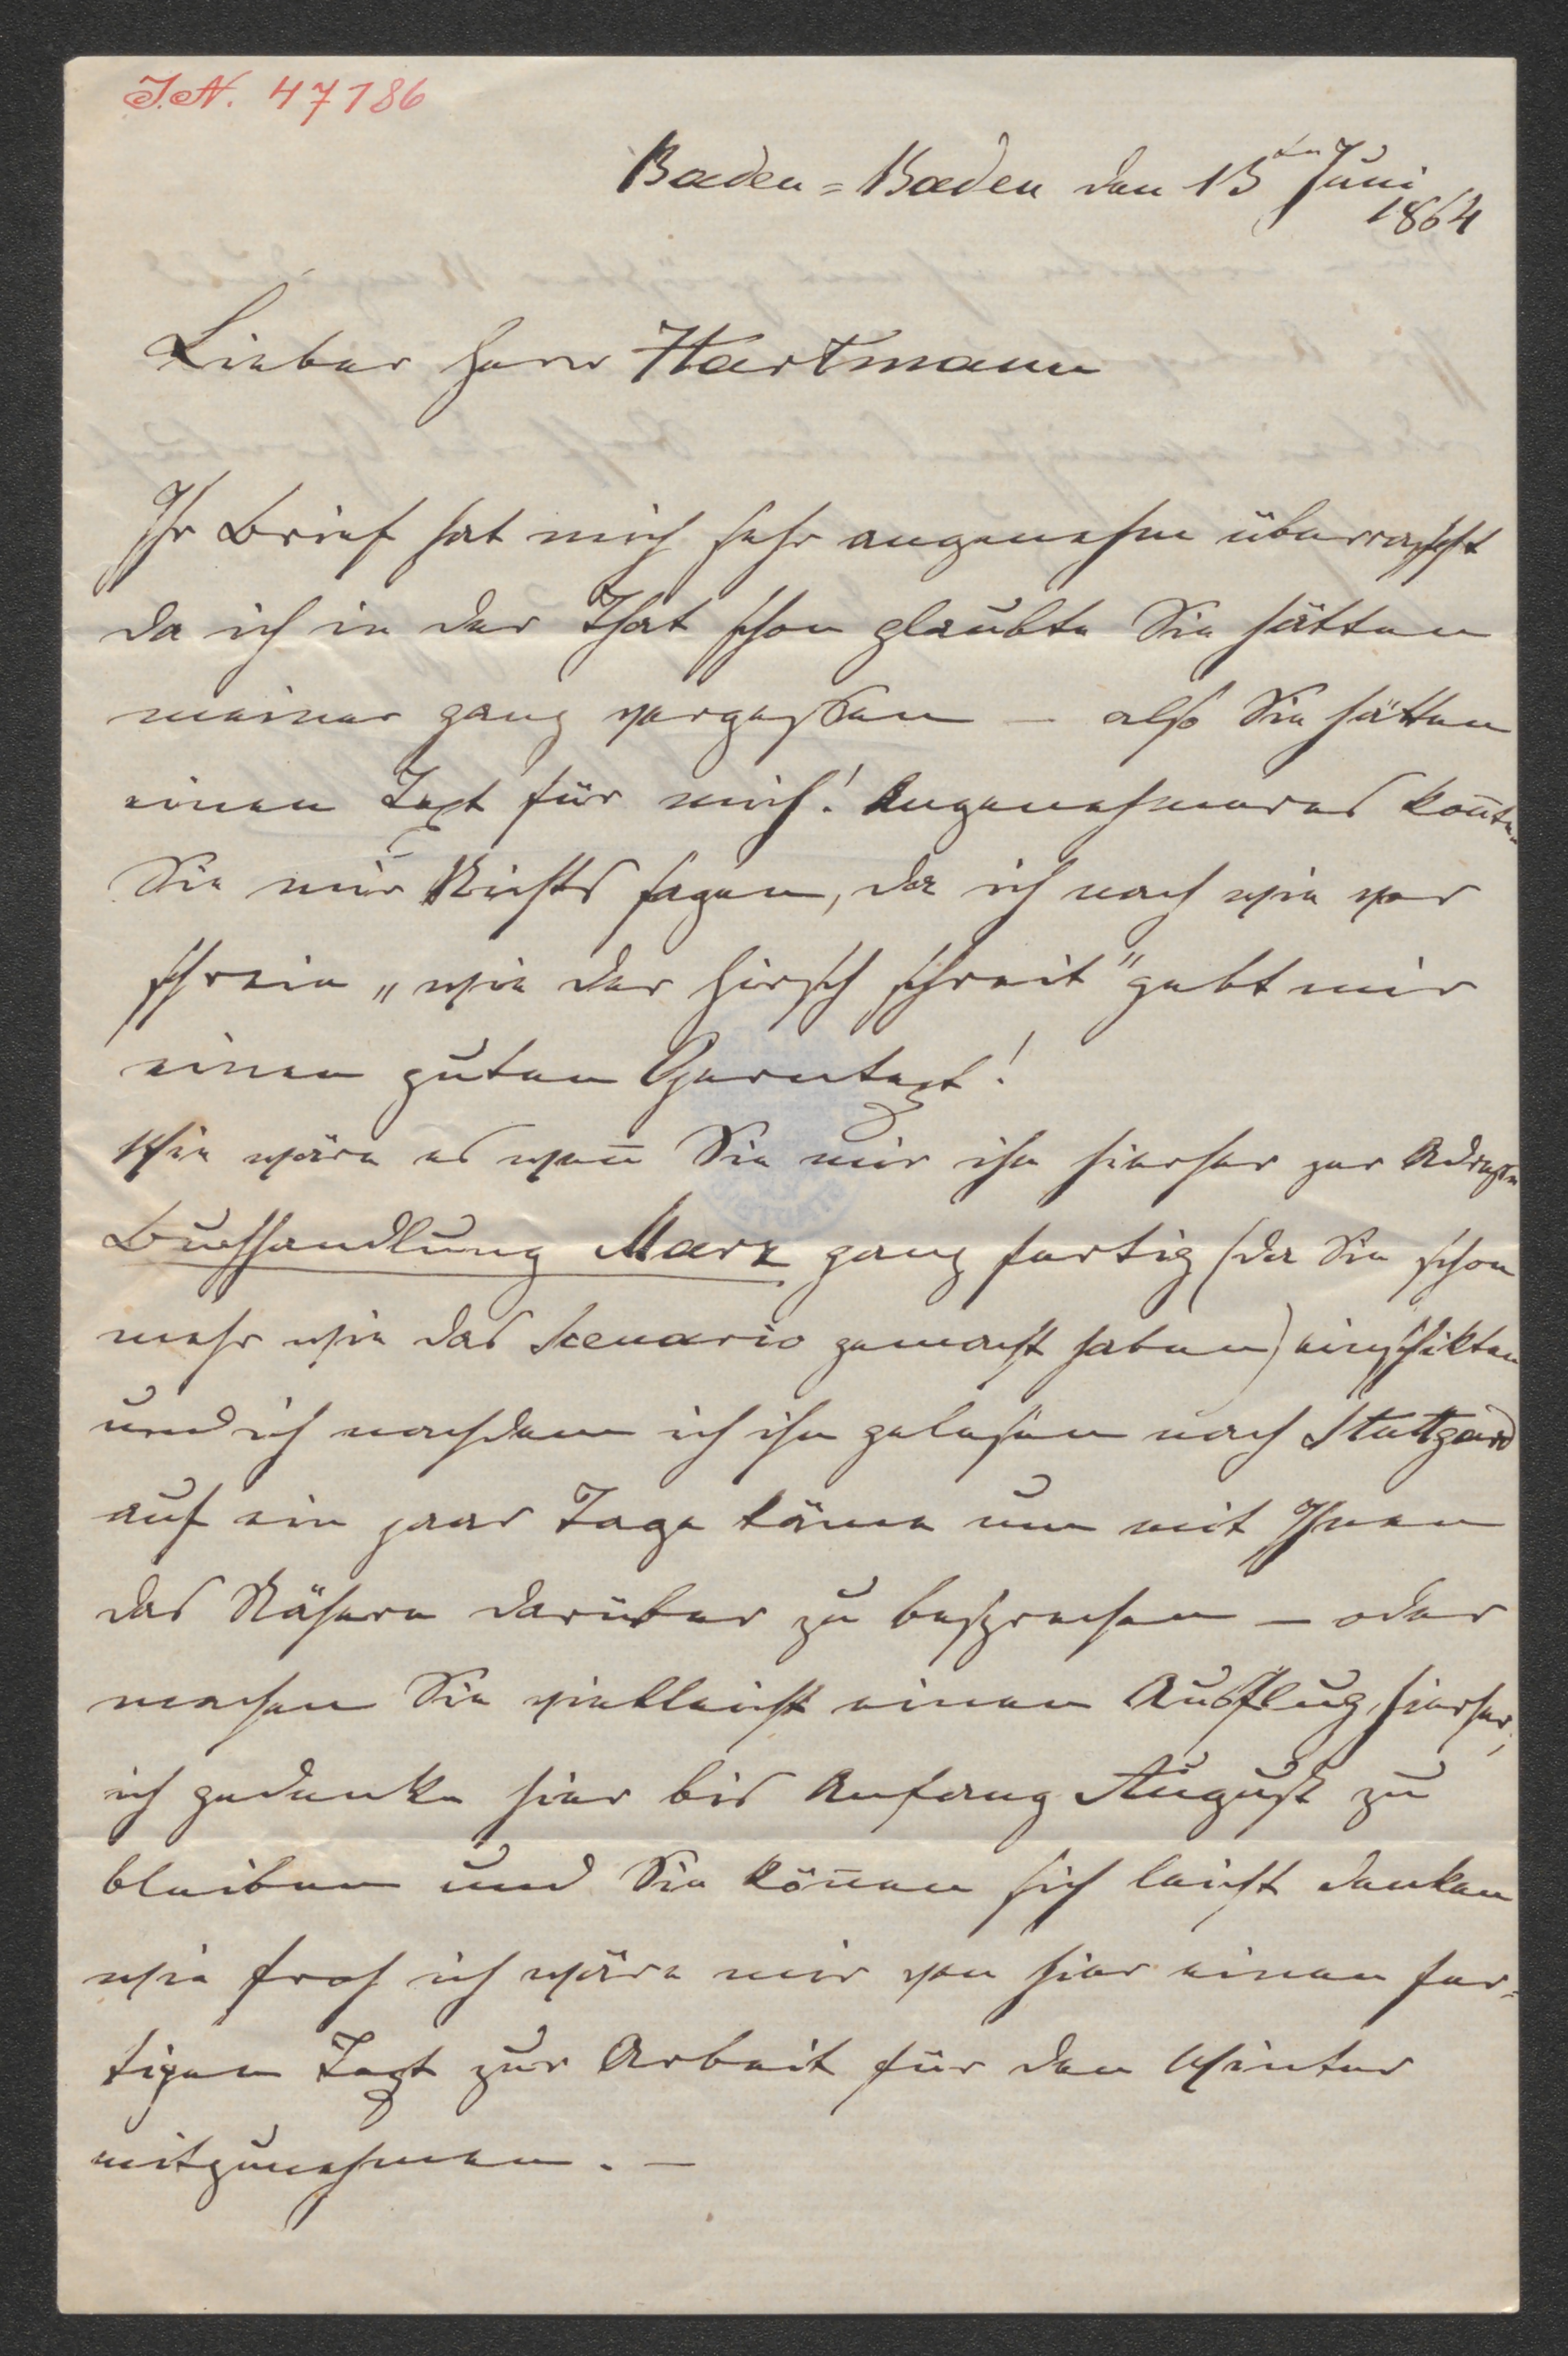 J.N. 47186
Baden=Baden den 15ten Juni
1864
Lieber Herr Hartmann
Ihr Brief hat mich sehr angenehm überrascht
da ich in der That schon glaubte Sie hätten
meiner ganz vergessen — also Sie hätten
einen Text für mich! Angenehmeres kon̄ten
Sie mir Nichts sagen, da ich nach wie vor
schreie „wie der Hirsch schreit" gebt mir
einen guten Operntext!
Wie wäre es wen̄ Sie mir ihn hierher per Adresse
Buchhandlung Marx ganz fertig (da Sie schon
mehr wie das Scenario gemacht haben) einschikten
und ich nachdem ich ihn gelesen nach Stuttgard
auf ein paar Tage käme um mit Ihnen
das Nähere darüber zu besprechen — oder
machen Sie vielleicht einen Ausflug hierher,
ich gedenke hier bis Anfang August zu
bleiben und Sie kön̄en sich leicht denken
wie froh ich wäre mir von hier einen fer=
tigen Text zur Arbeit für den Winter
mitzunehmen. —